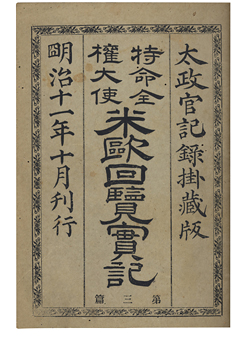 太政官記錄掛藏版
特命全
權大使
米歐回覽實記
第三篇
明治十一年十月刊行